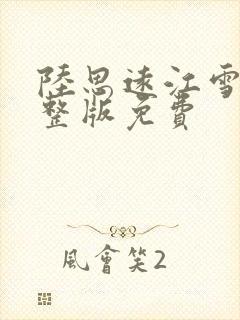 陸思遠江雪
整版免費
風會笑2